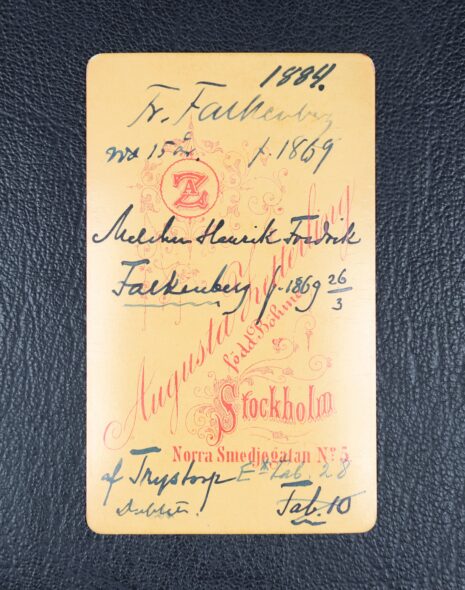 1884.
Fr. Falkenberg
vid 15 år. f. 1869
AZ
Melcher Henrik Fredrik
Falkenberg f. 1869 26/3
Augusta Zetterling
född Böhme
Stockholm
Norra Smedjegatan No 5
af Trystorp Ex Tab. 28
Tab. 10